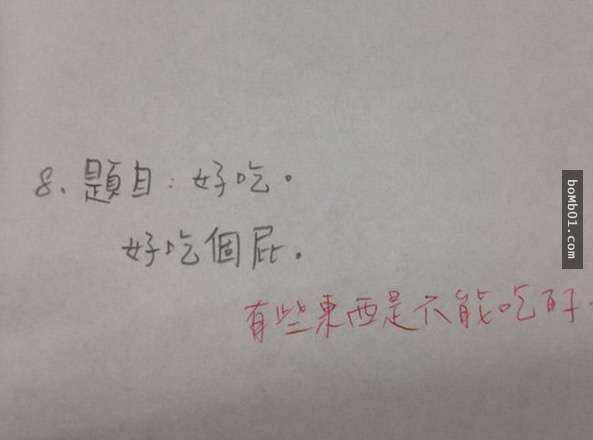 8、題目：好吃。
好吃個屁。
有些東西是不能吃的
boMb01.com